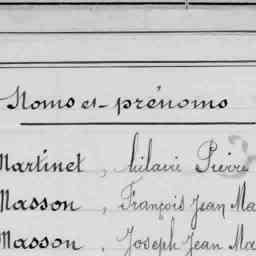 Noms et prénoms
Martinet, hilaire Pierre
Masson, François Jean Ma
Masson, Joseph Jean Ma